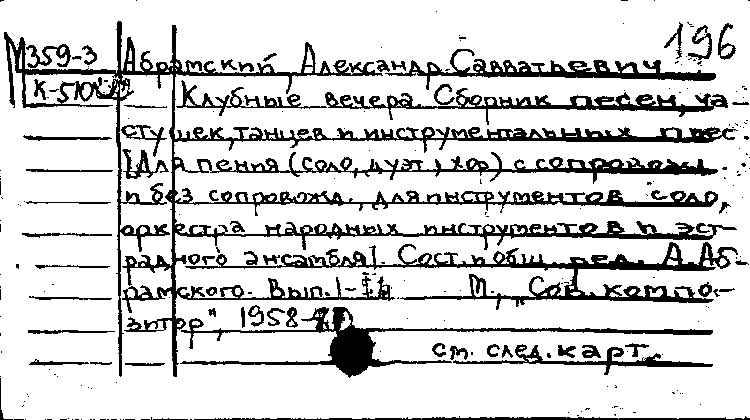 196
М359-3 Абрамский, Александр Савватьевич
Клубные вечера. Сборник песен, ча-
стушек, танцев и инструментальных пьес.
[Для пения (соло, дуэт, хор) с сопровожд.
и без сопровожд., для инструментов соло,
оркестра народных инструментов и эст-
радного ансамбля]. Сост. и общ. ред. А. Аб-
рамского. Вып. 1- М., „Сов. компо-
зитор", 1958-
см. след. карт.